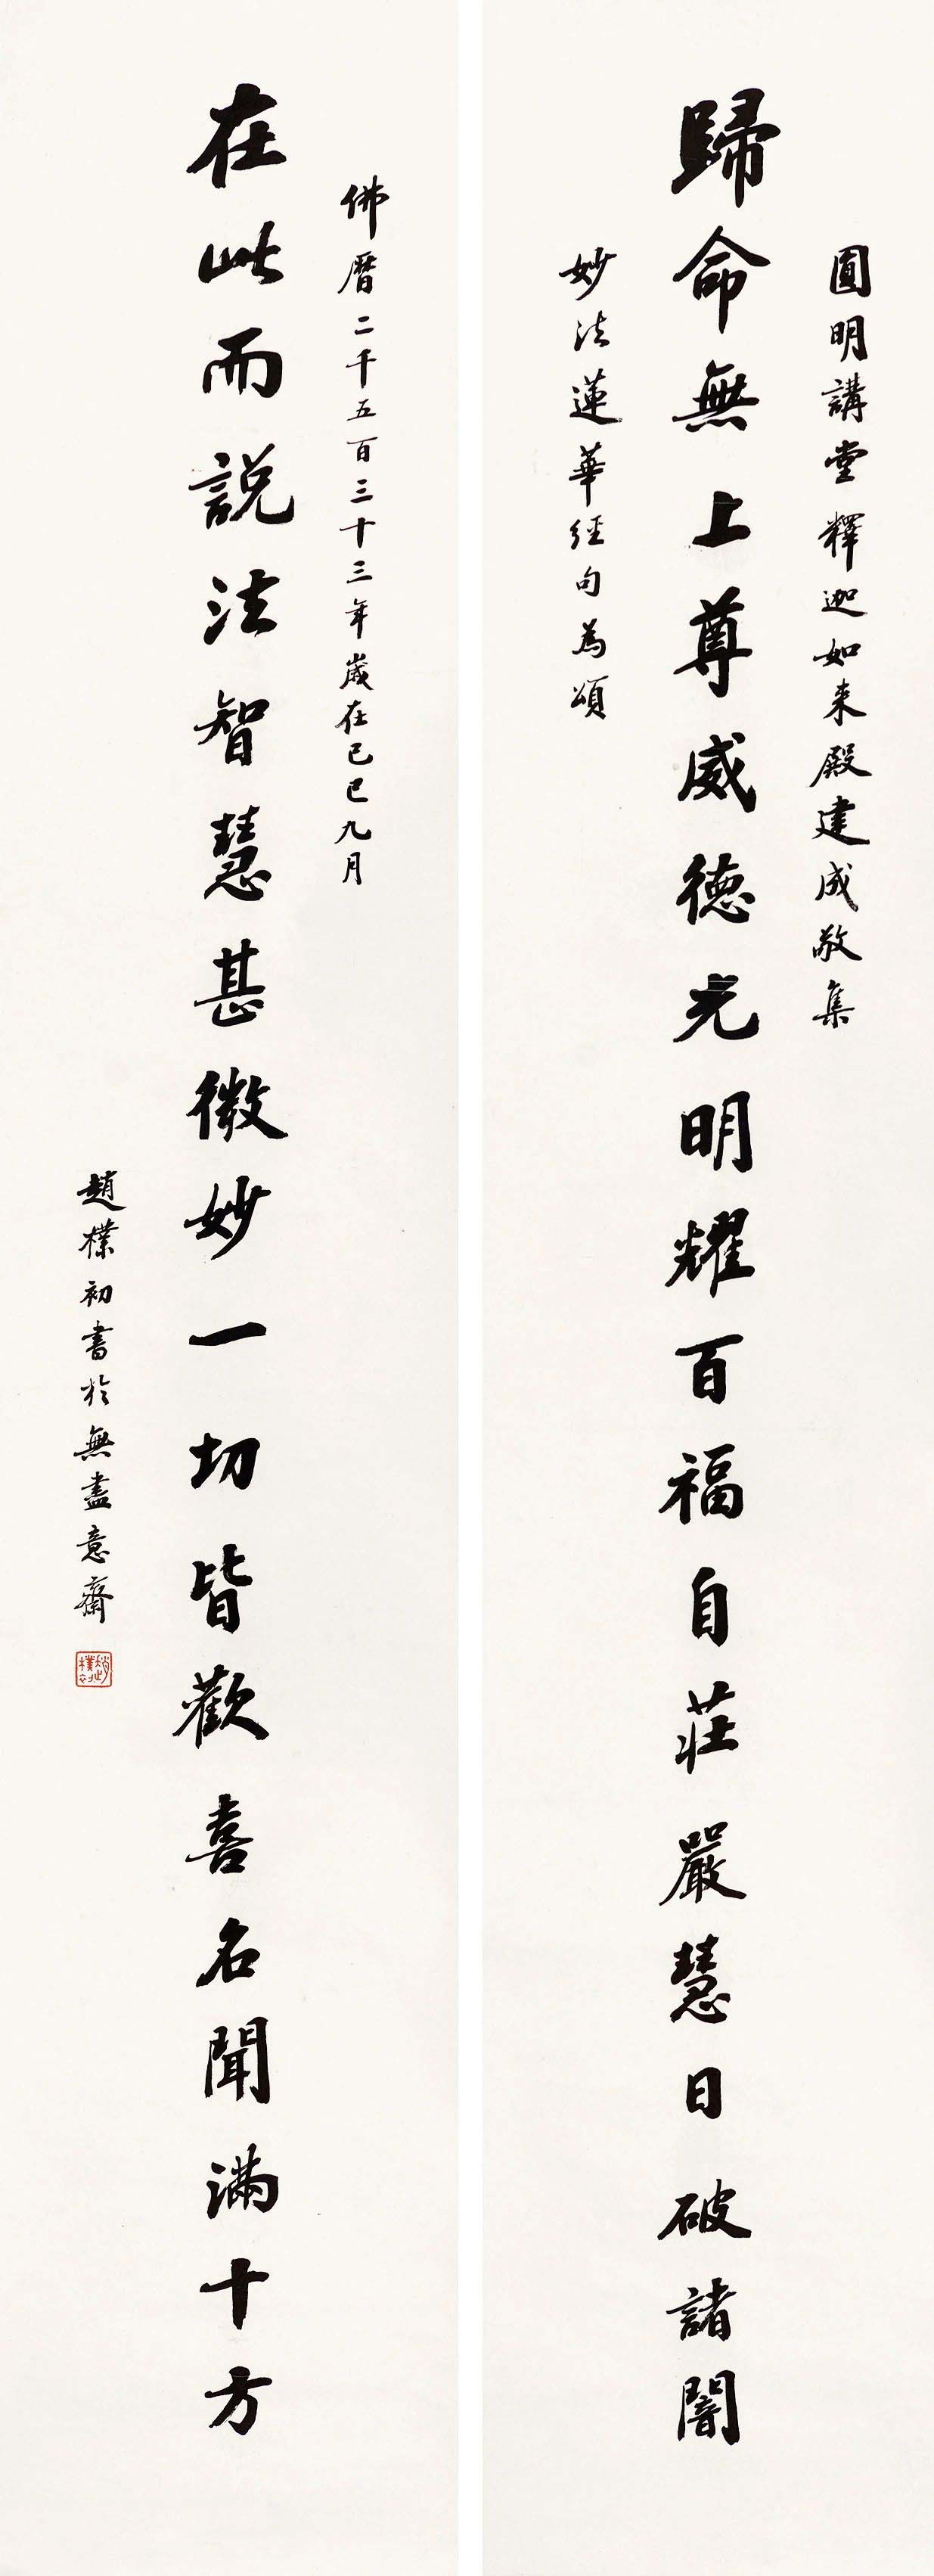 圓明講堂釋迦如来殿建成敬集
歸命無上尊威德光明耀百福自莊嚴慧日破諸闇
妙法蓮華經句為頌
佛曆二千五百三十三年歲在己巳九月
在此而說法智慧甚微妙一切皆歡喜名聞滿十方
趙樸初書於無盡意齋
趙樸初